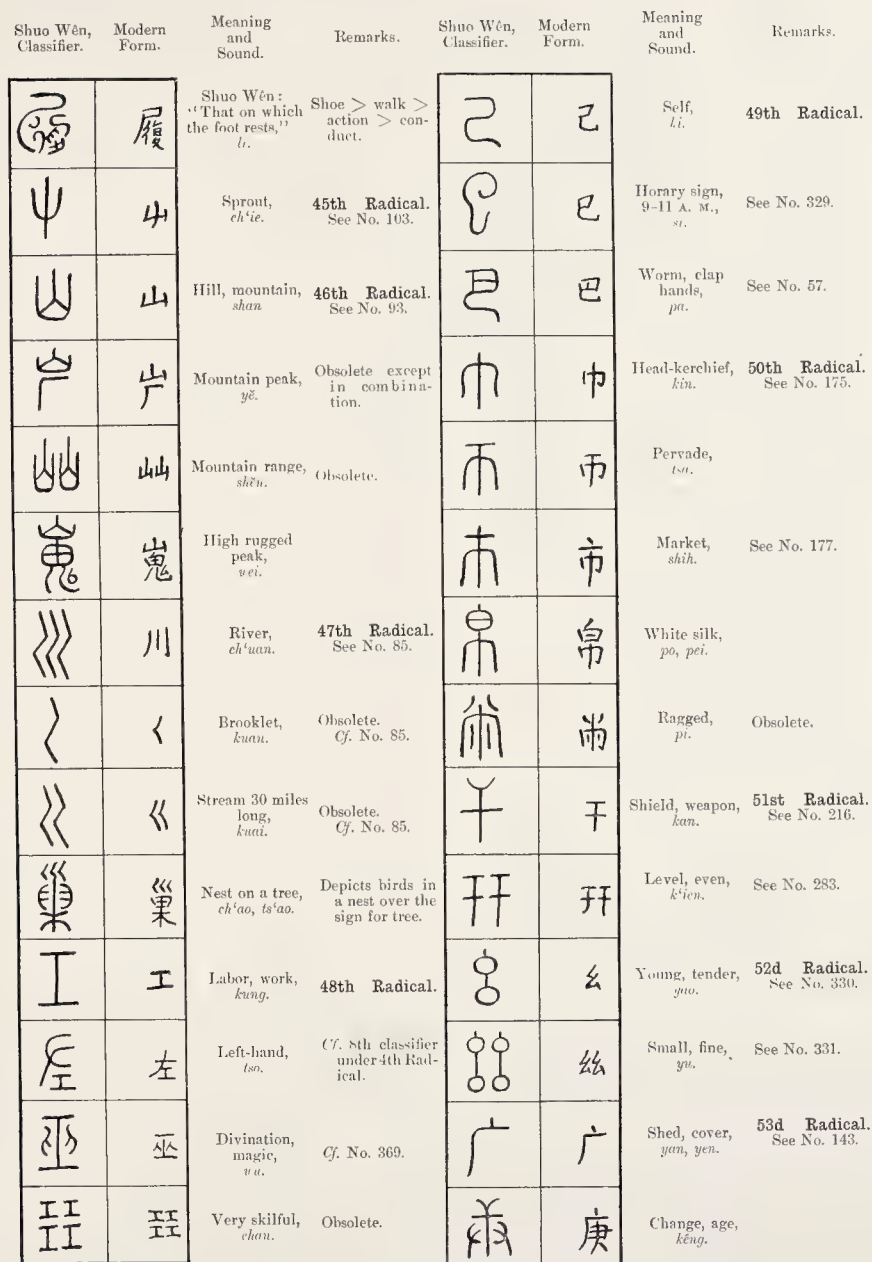 Shuo Wên, Classifier.
Modern Form.
Meaning and Sound.
Remarks.
履
Shuo Wên: "That on which the foot rests," li.
Shoe > walk > action > conduct.
屮
Sprout, ch‘ie.
45th Radical. See No. 103.
山
Hill, mountain, shan
46th Radical. See No. 93.
屵
Mountain peak, yĕ.
Obsolete except in combination.
屾
Mountain range, shĕn.
Obsolete.
嵬
High rugged peak, wei.
川
River, ch‘uan.
47th Radical. See No. 85.
𡿨
Brooklet, kuan.
Obsolete. Cf. No. 85.
巜
Stream 30 miles long, kuai.
Obsolete. Cf. No. 85.
巢
Nest on a tree, ch‘ao, ts‘ao.
Depicts birds in a nest over the sign for tree.
工
Labor, work, kung.
48th Radical.
左
Left-hand, tso.
Cf. 8th classifier under 4th Radical.
巫
Divination, magic, wu.
Cf. No. 369.
㠭
Very skilful, chan.
Obsolete.
Shuo Wên, Classifier.
Modern Form.
Meaning and Sound.
Remarks.
己
Self, ki.
49th Radical.
巳
Horary sign, 9-11 A. M., si.
See No. 329.
巴
Worm, clap hands, pa.
See No. 57.
巾
Head-kerchief, kin.
50th Radical. See No. 175.
帀
Pervade, tsa.
市
Market, shih.
See No. 177.
帛
White silk, po, pei.
㡀
Ragged, pi.
Obsolete.
干
Shield, weapon, kan.
51st Radical. See No. 216.
幵
Level, even, k‘ien.
See No. 283.
幺
Young, tender, yao.
52d Radical. See No. 330.
𢆶
Small, fine, yu.
See No. 331.
广
Shed, cover, yan, yen.
53d Radical. See No. 143.
庚
Change, age, kêng.